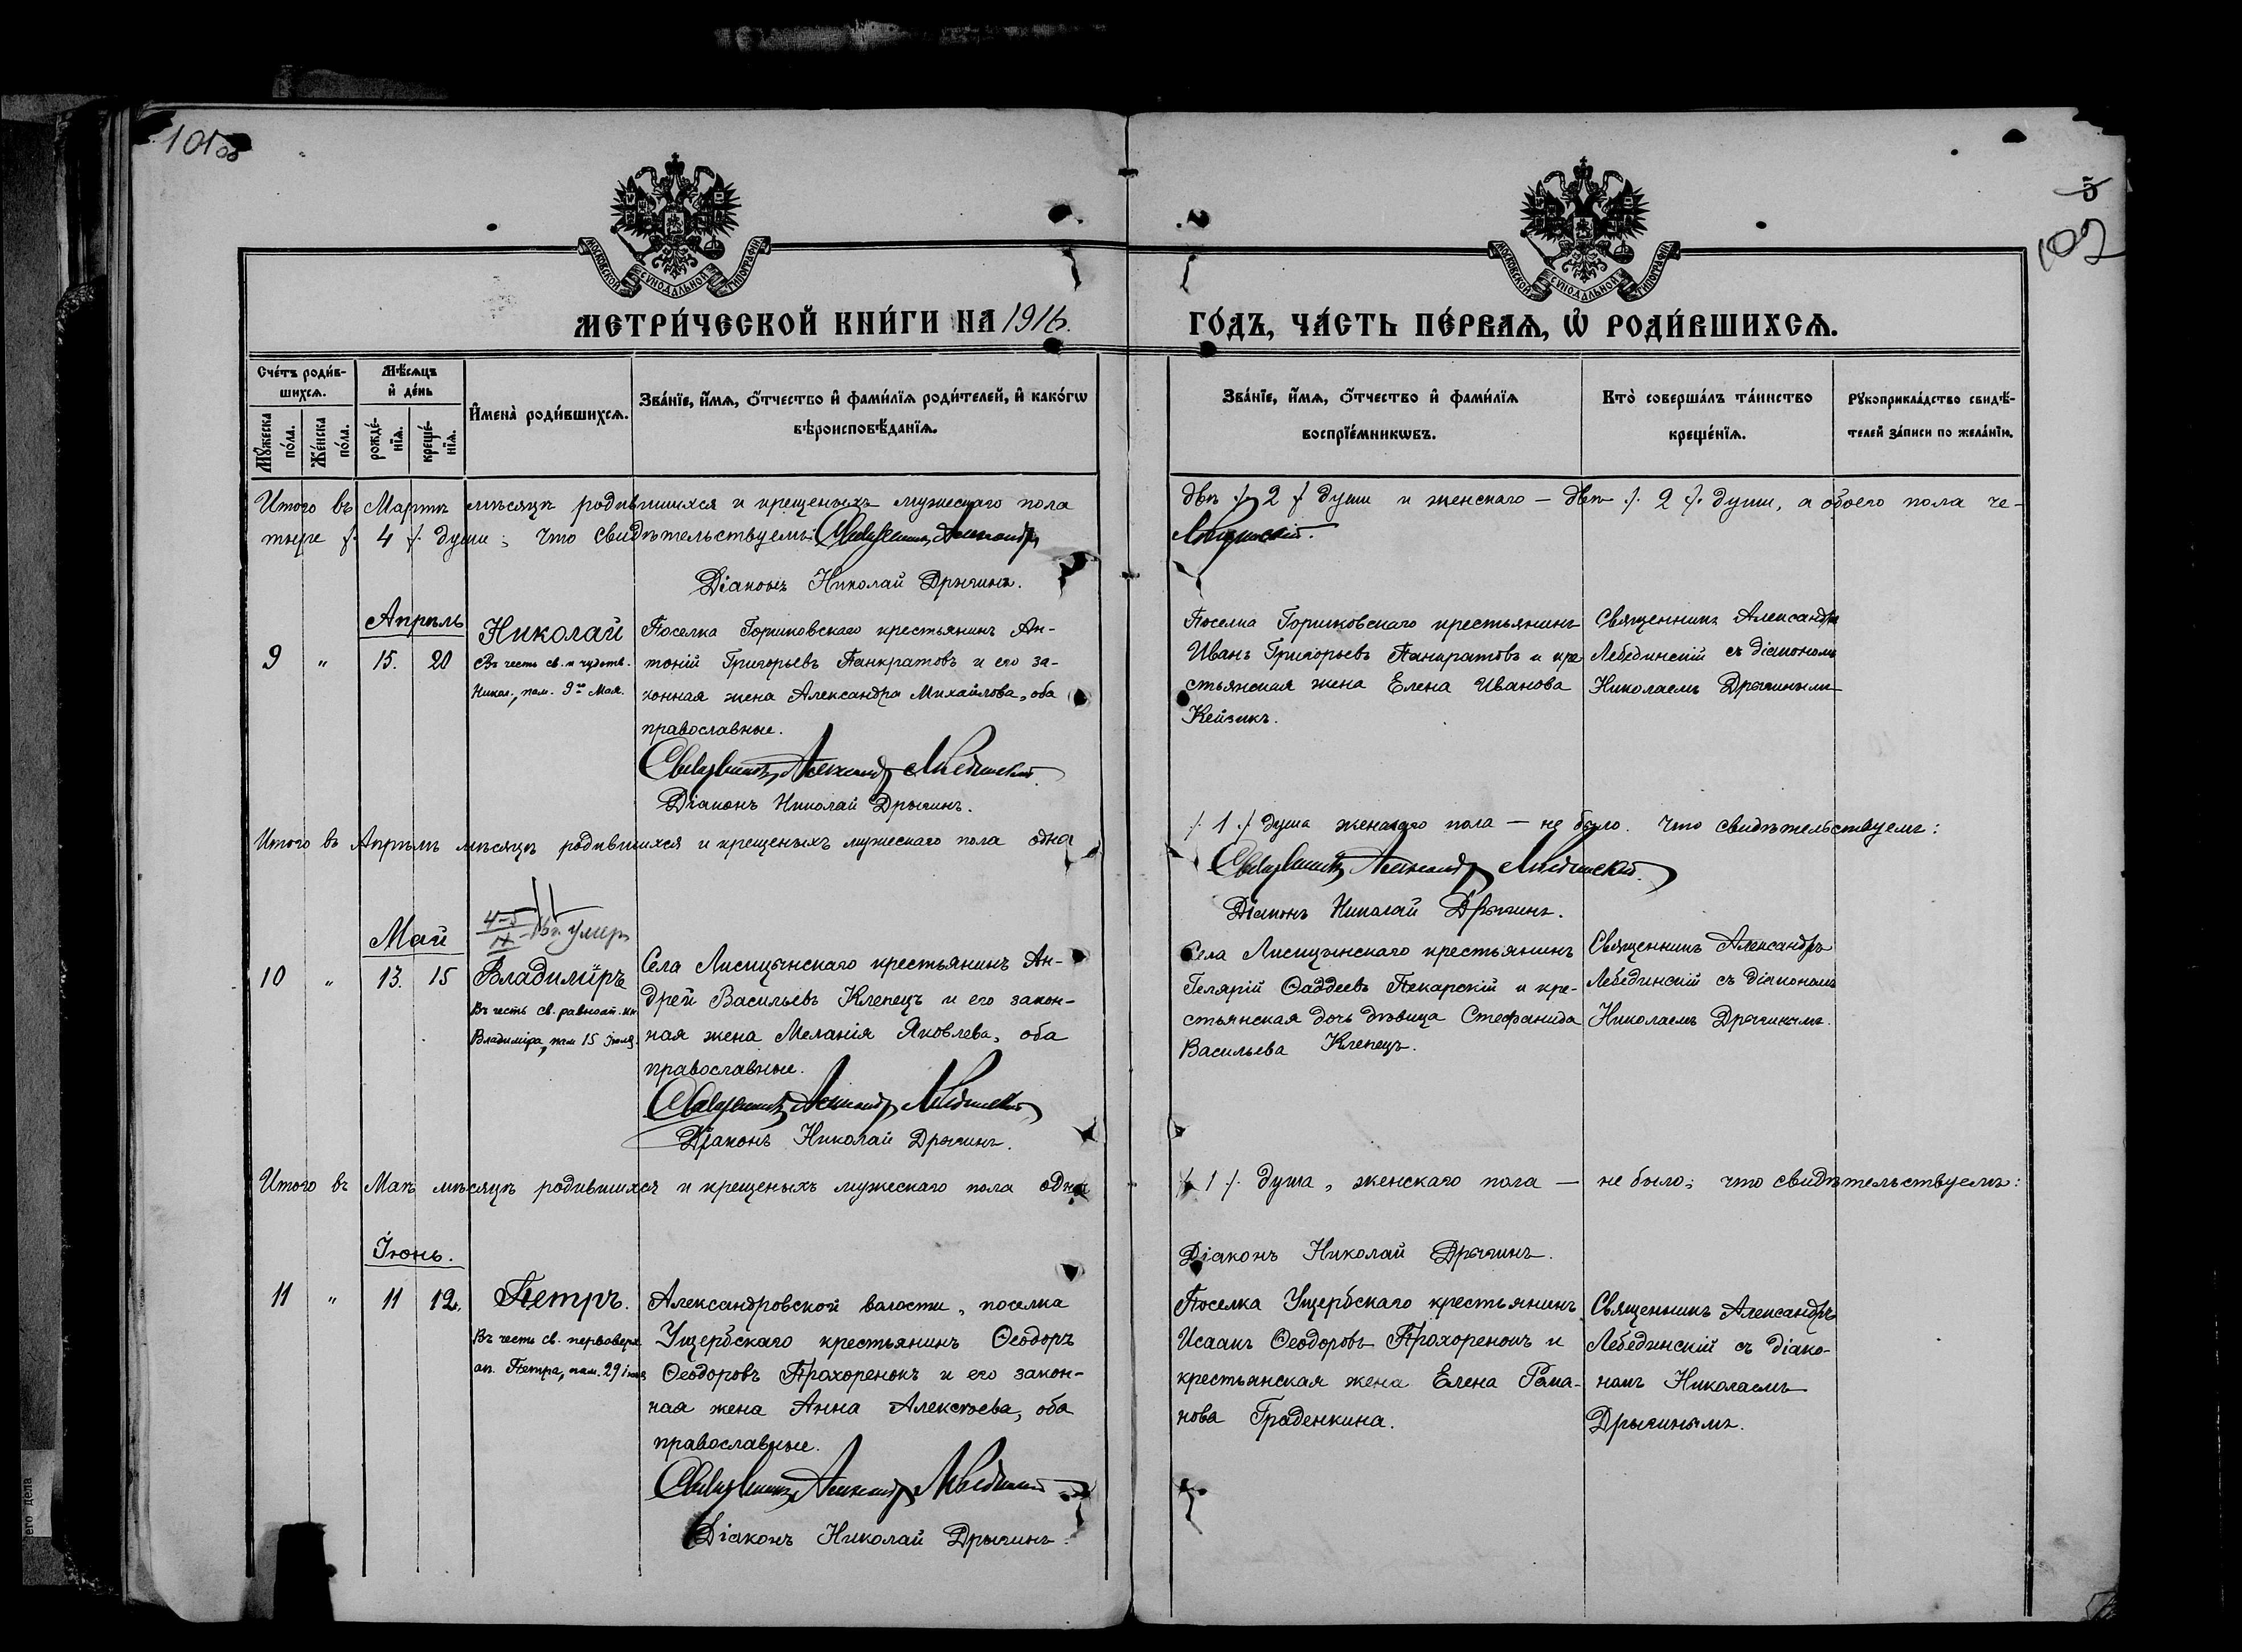 101 об
5
102
МОСКОВСКОЙ СѴНОДАЛЬНОЙ ТИПОГРАФІИ
МОСКОВСКОЙ СѴНОДАЛЬНОЙ ТИПОГРАФІИ
МЕТРИ́ЧЕСКОЙ КНИ́ГИ НА 1916.
ГО́ДЪ, ЧА́СТЬ ПЕ́РВАѦ, Ѡ҆ РОДИ́ВШИХСѦ.
Сче́тъ роди́в-
шихсѧ.
Мꙋ́жеска по́ла.
Же́нска по́ла.
Мѣ́сѧцъ
и҆ де́нь
рожде́-
нїѧ.
креще́-
нїѧ.
И҆мена̀ роди́вшихсѧ.
Зва́нїе, и҆́мѧ, ѻ҆́тчество и҆ фами́лїѧ роди́телей, и҆ како́гѡ
вѣроисповѣ́данїѧ.
Зва́нїе, и҆́мѧ, ѻ҆́тчество и҆ фами́лїѧ
воспрїе́мникѡвъ.
Кто̀ соверша́лъ та́инство
креще́нїѧ.
Рꙋкоприкла́дство свидѣ́-
телей за́писи по жела́нїю.
Итого въ Мартѣ мѣсяцѣ родившихся и крещеныхъ мужескаго пола
двѣ /. 2 ./ души и женскаго — двѣ /. 2 ./ души, а обоего пола че-
тыре /. 4 ./ души; что свидѣтельствуемъ: Священникъ Александръ
Лебединскій.
Діаконъ Николай Дрыгинъ.
Апрѣль
9 " 15. 20
Николай
Въ честь св. и чудотв.
Никол., пам. 9го Мая.
Поселка Гориковскаго крестьянинъ Ан-
тоній Григорьевъ Панкратовъ и его за-
конная жена Александра Михайлова, оба
православные.
Священникъ Александръ Лебединскій.
Діаконъ Николай Дрыгинъ.
Поселка Гориковскаго крестьянинъ
Иванъ Григорьевъ Панкратовъ и кре-
стьянская жена Елена Иванова
Кейзикъ.
Священникъ Александръ
Лебединскій съ діакономъ
Николаемъ Дрыгинымъ
Итого въ Апрѣлѣ мѣсяцѣ родившихся и крещеныхъ мужескаго пола одна
/. 1 ./ душа женскаго пола — не было. Что свидѣтельствуемъ:
Священникъ Александръ Лебединскій.
Діаконъ Николай Дрыгинъ.
Май
умеръ
10 " 13. 15
Владиміръ
Въ честь св. равноап. кн.
Владиміра, пам 15 Іюля.
Села Лисицынскаго крестьянинъ Ан-
дрей Васильевъ Клепецъ и его закон-
ная жена Меланія Яковлева, оба
православные.
Священникъ Александръ Лебединскій
Діаконъ Николай Дрыгинъ.
Села Лисицынскаго крестьянинъ
Гелярій Ѳаддеевъ Пекарскій и кре-
стьянская дочь дѣвица Стефанида
Васильева Клепецъ.
Священникъ Александръ
Лебединскій съ діакономъ
Николаемъ Дрыгинымъ.
Итого въ Маѣ мѣсяцѣ родившихся и крещеныхъ мужескаго пола одна
/. 1 /. душа, женскаго пола — не было; что свидѣтельствуемъ:
Діаконъ Николай Дрыгинъ.
Іюнь.
11 " 11 12.
Петръ.
Въ честь св. первоверх.
ап. Петра, пам. 29 іюня
Александровской волости, поселка
Ущербскаго крестьянинъ Ѳеодоръ
Ѳеодоровъ Прохоренокъ и его закон-
ная жена Анна Алексѣева, оба
православные.
Священникъ Александръ Лебединскій
Діаконъ Николай Дрыгинъ.
Поселка Ущербскаго крестьянинъ
Исаакъ Ѳеодоровъ Прохоренокъ и
крестьянская жена Елена Рома-
нова Граденкина.
Священникъ Александръ
Лебединскій съ діако-
номъ Николаемъ
Дрыгинымъ.
его дела